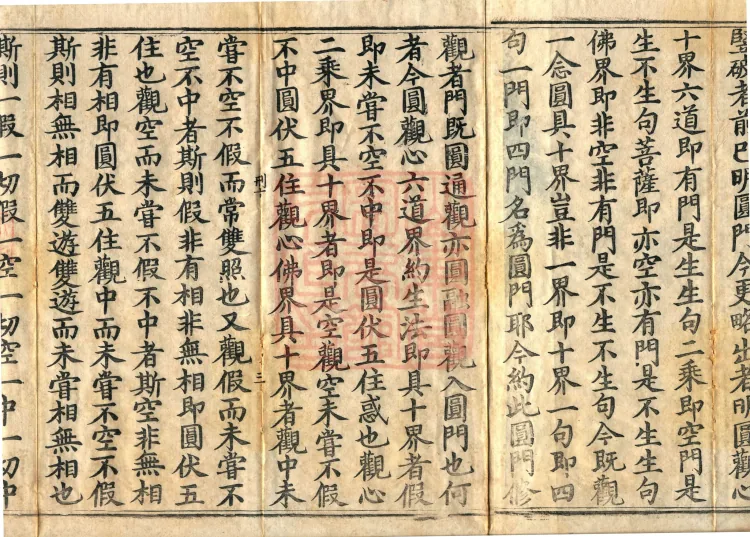 豎破者前巳明圓門今更略出者明圓觀心
十界六道即有門是生生句二乘即空門是
生不生句菩薩即亦空亦有門是不生生句
佛界即非空非有門是不生不生句今既觀
一念圓具十界豈非一界即十界一句即四
句一門即四門名爲圓門耶今約此圓門修
觀者門既圓通觀亦圓融圓觀入圓門也何
者今圓觀心六道界約生法即具十界者假
即未甞不空不中即是圓伏五住惑也觀心
二乘界即具十界者即是空觀空未甞不假
不中圓伏五住觀心佛界具十界者觀中未
甞不空不假而常雙照也又觀假而未甞不
三
空不中者斯則假非有相非無相即圓伏五
住也觀空而未甞不假不中者斯空非無相
非有相即圓伏五住觀中而未甞不空不假
斯則相無相而雙遊雙遊而未甞相無相也
斯則一假一切假一空一切空一中一切中